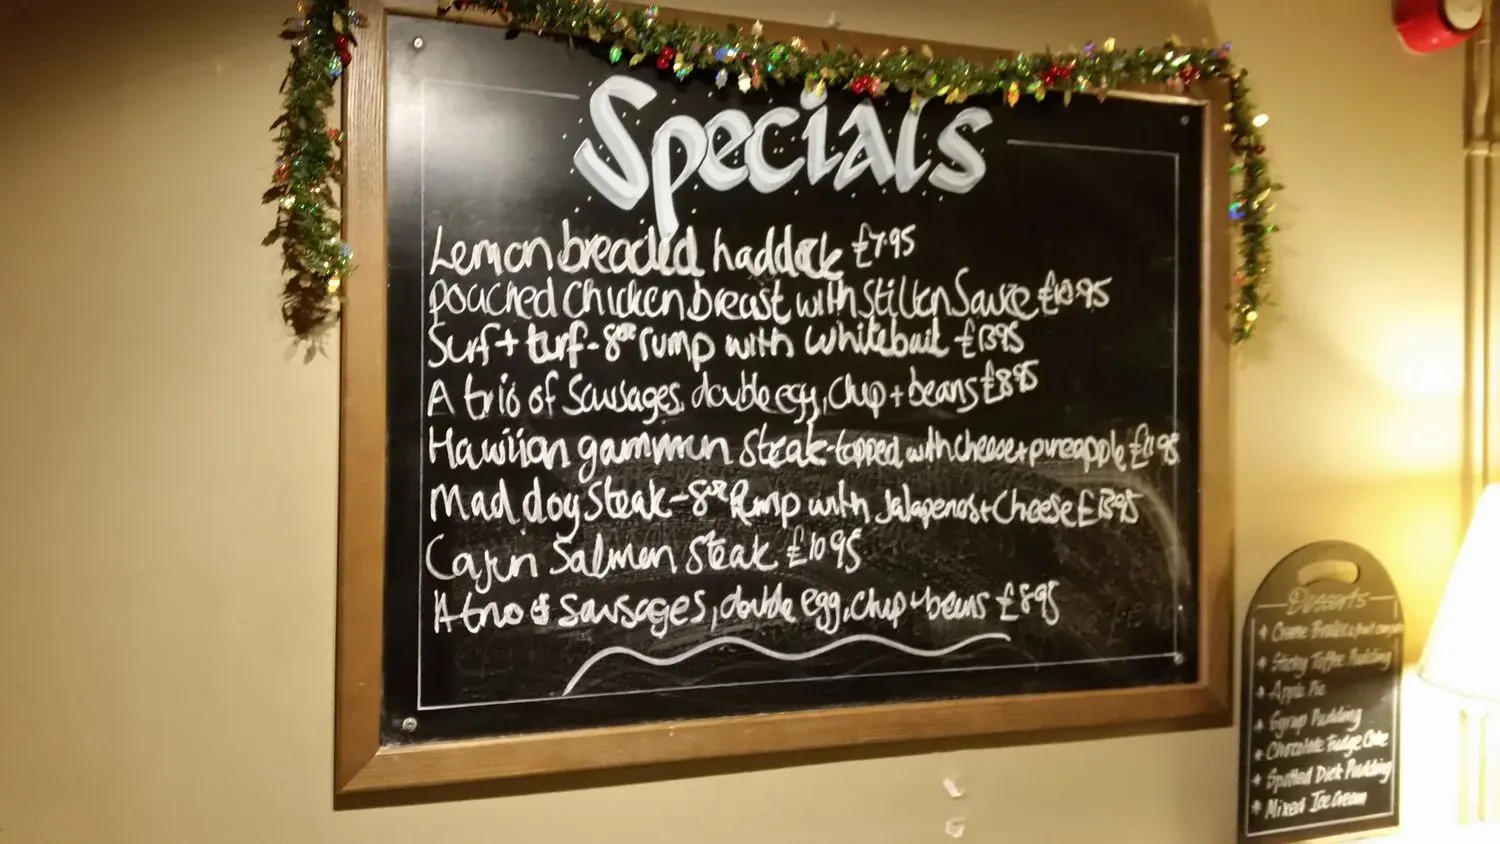 Specials
Lemon breaded haddock £7.95
poached chicken breast with Stilton Sauce £10.95
Surf + turf - 8oz rump with whitebait £13.95
A trio of Sausages, double egg, chip + beans £8.95
Hawiian gammon steak - topped with cheese + pineapple £11.95
Mad dog steak - 8oz Rump with Jalapenos + Cheese £13.95
Cajun Salmon Steak £10.95
A trio of sausages, double egg, chip + beans £8.95
Desserts
* Creme Brulee & fruit
* Sticky Toffee Pudding
* Apple Pie
* Syrup Pudding
* Chocolate Fudge Cake
* Spotted Dick Pudding
* Mixed Ice Cream